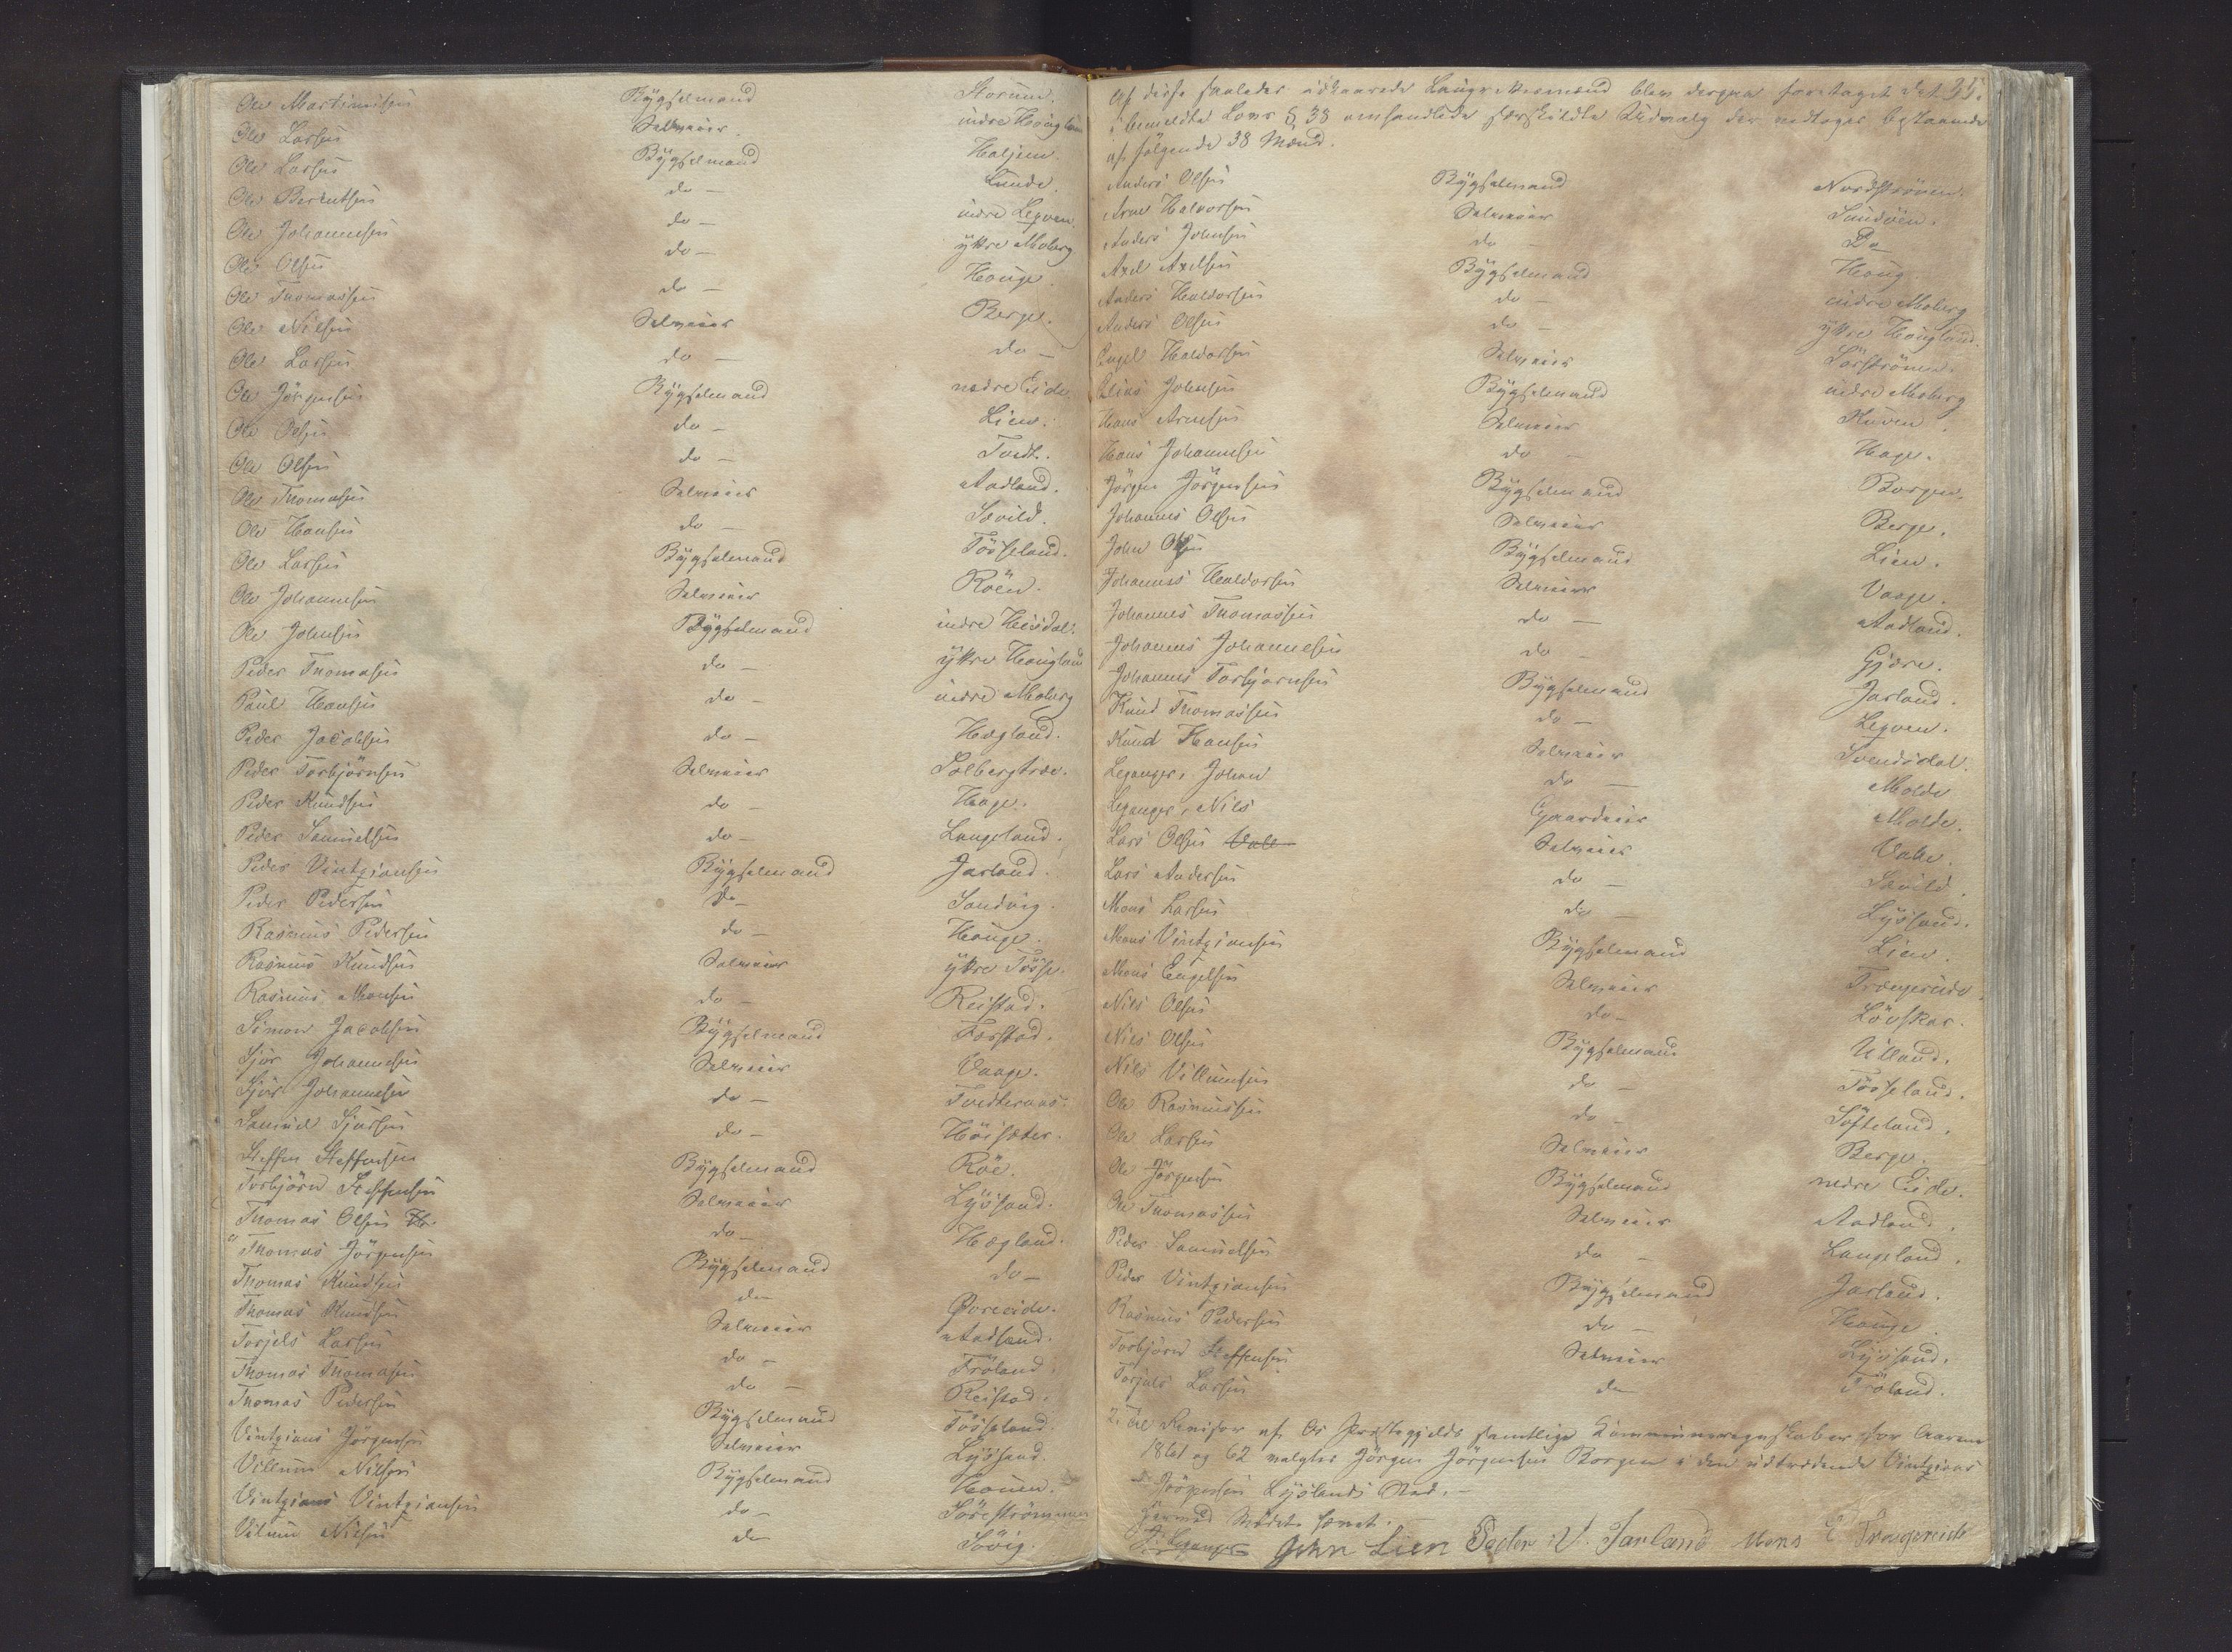 Ole Martinusen Bÿgselmand Storum.
Ole Larsen Selveier. indre Hougland
Ole Larsen Bÿgselmand Haljem.
Ole Berentsen do — Lunde.
Ole Johannesen do — indre Lepsøen.
Ole Olsen do — ÿttre Moberg
Ole Thomassen do — Houge.
Ole Nilsen Selveier Berge.
Ole Larsen do — do —
Ole Jörgensen Bÿgselmand nedre Eide
Ole Olsen do — Lien.
Ole Olsen do — Tvedt.
Ole Thomasen Selveier Aadland.
Ole Hansen do — Sævild.
Ole Larsen Bÿgselmand Tösseland.
Ole Johannesen Selveier Röen.
Ole Johnsen Bÿgselmand indre Heisdal.
Peder Thomasen do — ÿttre Hougland
Paul Hansen do — indre Moberg
Peder Jacobsen do — Hægland.
Peder Torbjörnsen Selveier Solbergtræ.
Peder Knudsen do — Hage.
Peder Samuelsen do — Langeland.
Peder Vintziansen Bÿgselmand Jarland.
Peder Pedersen do — Sandvig.
Rasmus Pedersen do — Houge.
Rasmus Knudsen Selveier ÿttre Tösse.
Rasmus Monsen do — Reistad.
Simon Jacobsen Bÿgselmand Forstad.
Sjur Johannesen Selveier Vaage.
Sjur Johannesen do — Tvedteraas.
Samuel Sjursen do — Höisæter.
Steffen Steffensen Bÿgselmand Röe.
Torbjörn Steffensen Selveier Lÿssand.
Thomas Olsen do — Hægland.
Thomas Jörgensen Bÿgselmand do —
Thomas Knudsen do — Øvreeide.
Thomas Knudsen Selveier Aadland.
Torjels Larsen do — Fröland
Thomas Thomasen do — Reistad.
Thomas Pedersen Bÿgselmand Tösseland.
Vintzians Jörgensen Selveier Lÿssand.
Villum Nilsen Bÿgselmand Houen.
Vintzians Vintziansen do — Söreströmmen
Vilum Nilsen do Sövig.
35.
Af disse saaledes udkaarede Laugrettesmænd blev derpaa foretaget det
i bemeldte Lovs § 38 omhandlede særskildte Udvalg der modtoges bestaaende
af fölgende 38 Mænd.
Anders Olsen Bÿgselmand Nordströnen.
Arne Halvorsen Selveier Sundöen.
Anders Johnsen do — Do
Axel Axelsen Bÿgselmand Houg
Anders Haldorsen do — indre Moberg
Anders Olsen do — ÿttre Hougland.
Engel Haldorsen Selveier Sörströnen.
Elias Johnsen Bÿgselmand indre Moberg
Hans Arnesen Selveier Kuven.
Hans Johannesen do — Hage.
Jörgen Jörgensen Bÿgselmand Borgen.
Johannes Olsen Selveier Berge.
John Olsen Bÿgselmand Lien.
Johannes Haldorsen Selveier Vaage.
Johannes Thomassen do — Aadland.
Johannes Johannesen do — Gjøre.
Johannes Torbjörnsen Bÿgselmand Jarland.
Knud Thomassen do — Lepsøen.
Knud Hansen Selveier Svendsdal.
Leganger, Johan do — Molde
Leganger, Nils Gaardeier Molde.
Lars Olsen Valle Selveier Valle.
Lars Andersen do — Sævild.
Mons Larsen do — Lÿssand.
Mons Vintziansen Bÿgselmand Lien.
Mons Engelsen Selveier Trængereide
Nils Olsen do — Lövskar.
Nils Olsen Bÿgselmand Ulland.
Nils Villumsen do — Tösseland.
Ole Rasmussen do — Söfteland.
Ole Larsen Selveier Berge.
Ole Jörgensen Bÿgselmand nedre Eide.
Ole Thomassen Selveier Aadland.
Peder Samuelsen do — Langeland.
Peder Vintziansen Bÿgselmand Jarland.
Rasmus Pedersen do — Houge.
Torbjörn Steffensen Selveier Lÿssand.
Torjels Larsen do Fröland.
2. Til Revisor af Os Præstegjelds samtlige Kommuneregnskaber for Aarene
1861 og 62 valgtes Jörgen Jörgensen Borgen i den udtrædende Vintzians
Jörgensen Lÿslands Sted. —
Hermed Mödet hævet.
J. Leganger John Lien Peder V. Jarland Mons E Trængereide